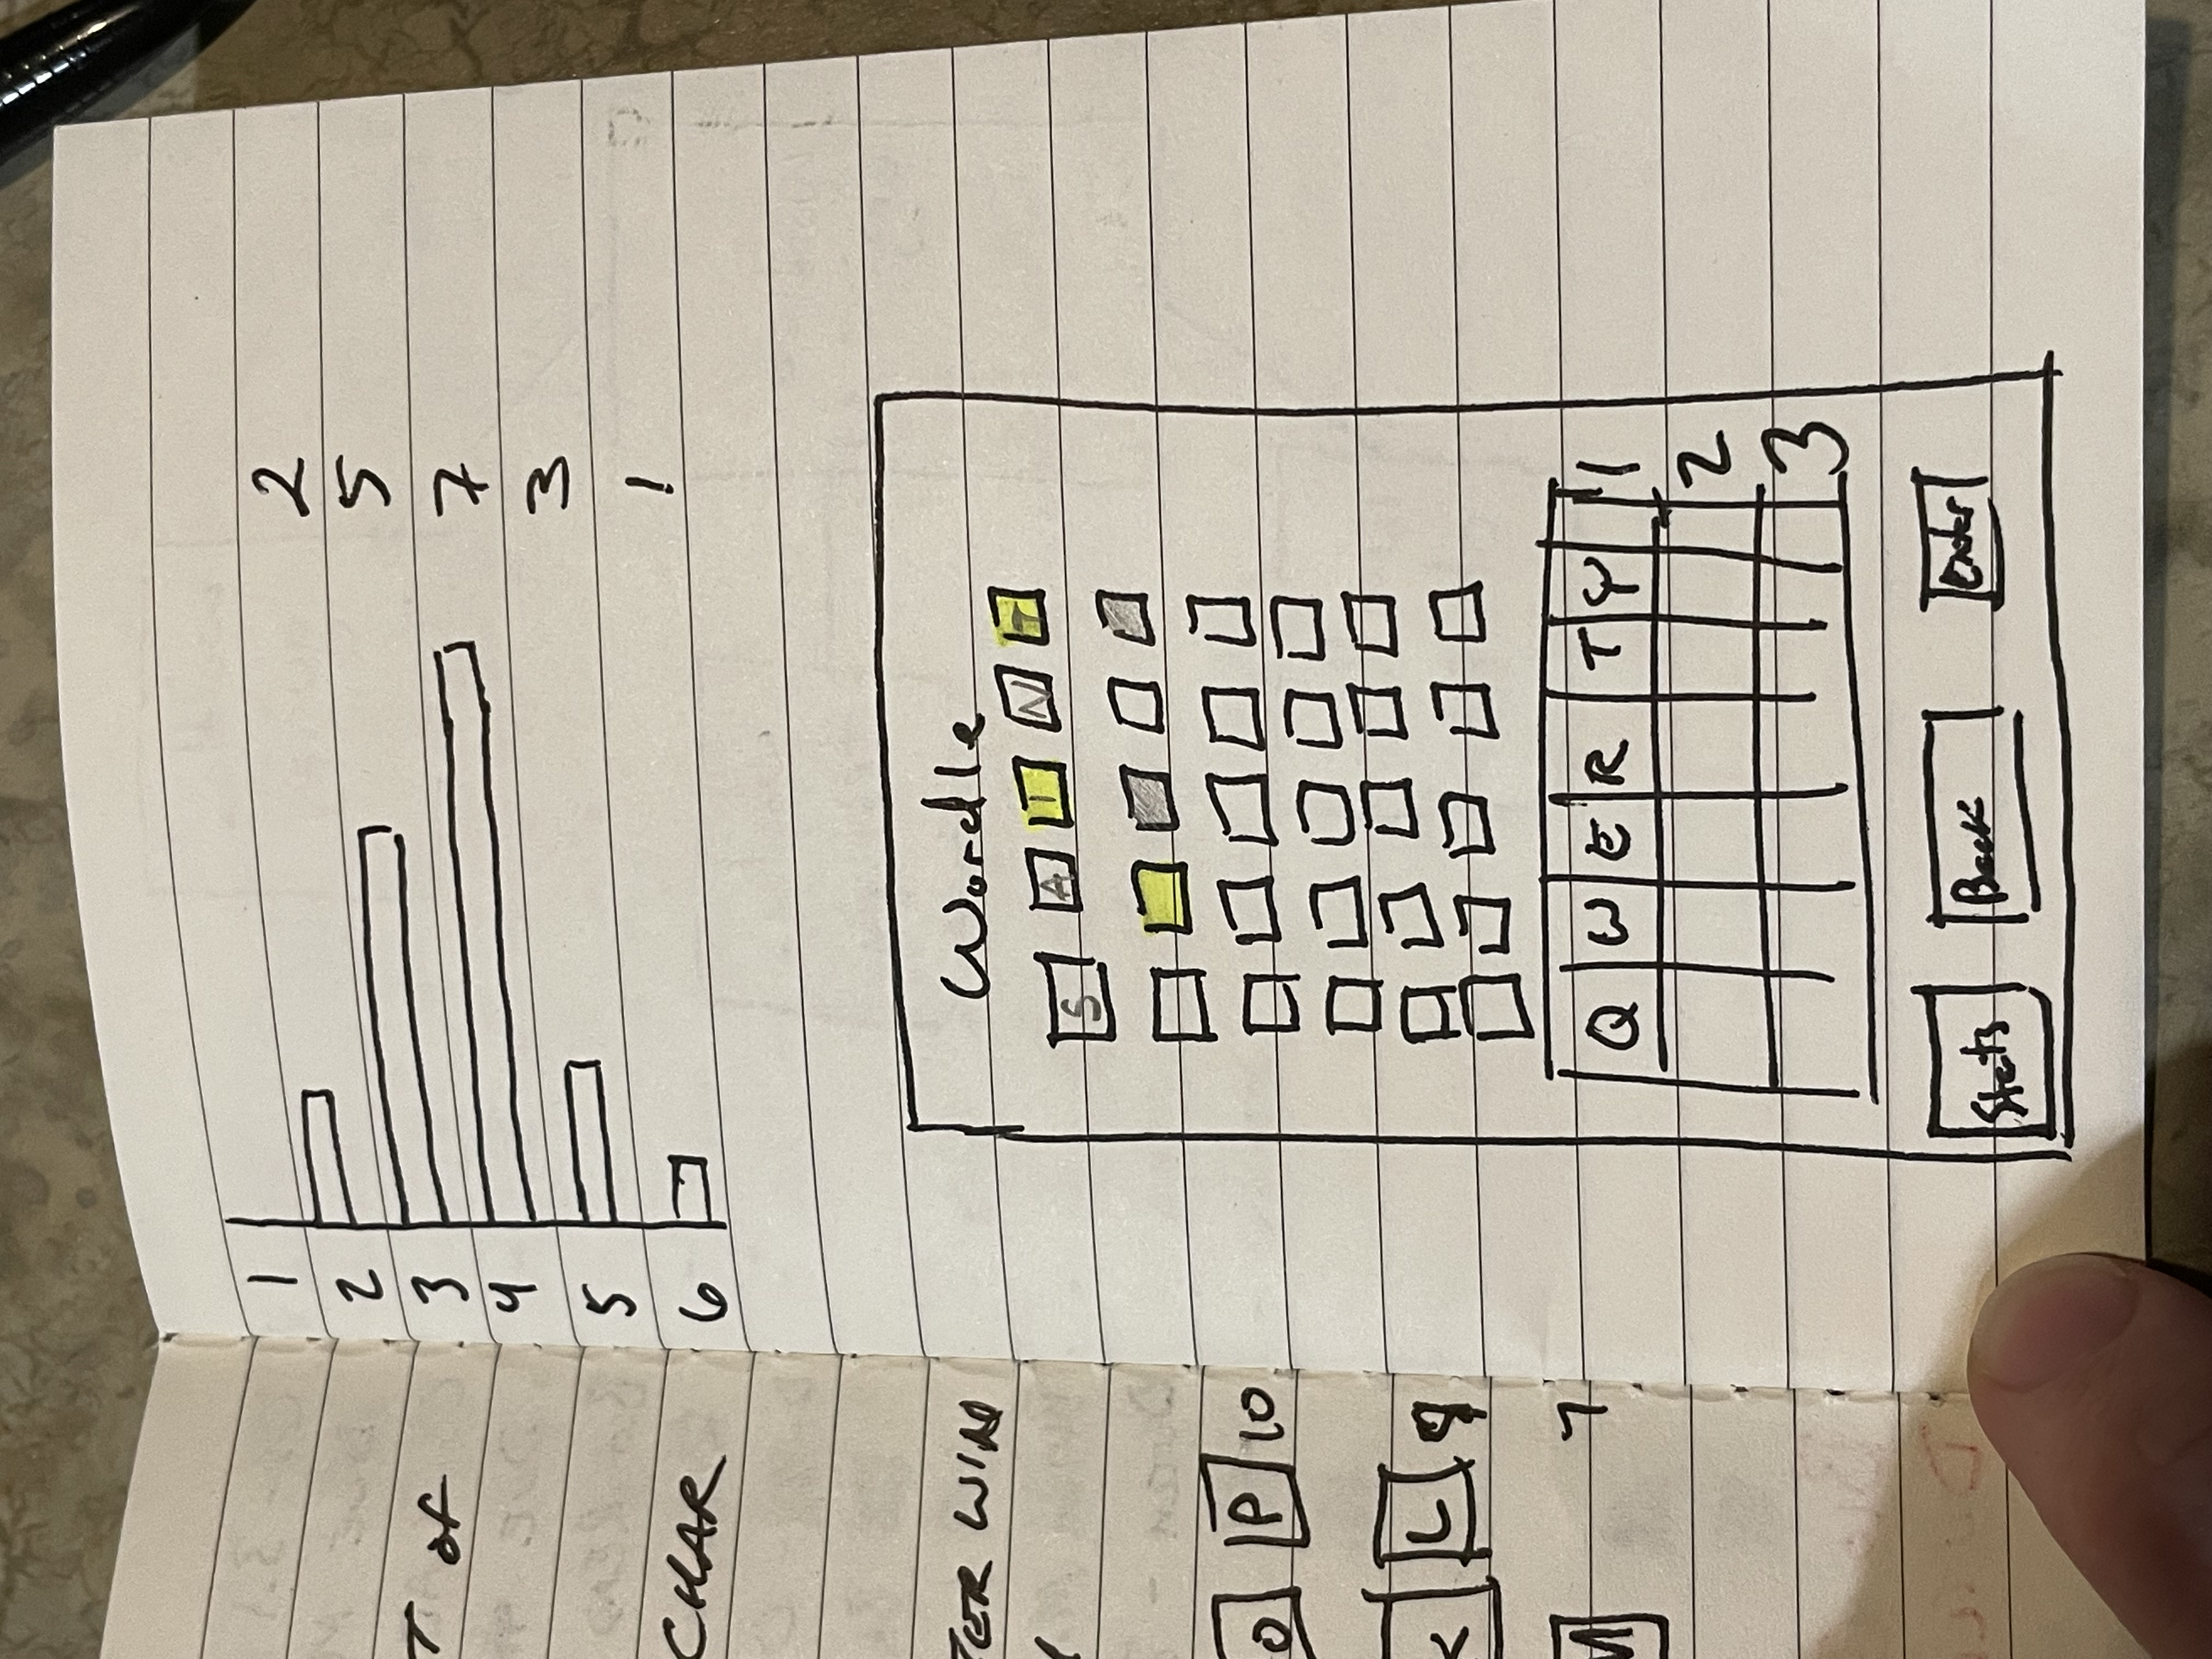 T of
CHAR
ER WIN
O P 10
K L 9
M 7
1
2
3
4
5
6
2
5
7
3
1
Wordle
S A I N T
Q W E R T Y 1
2
3
Stats Back Enter